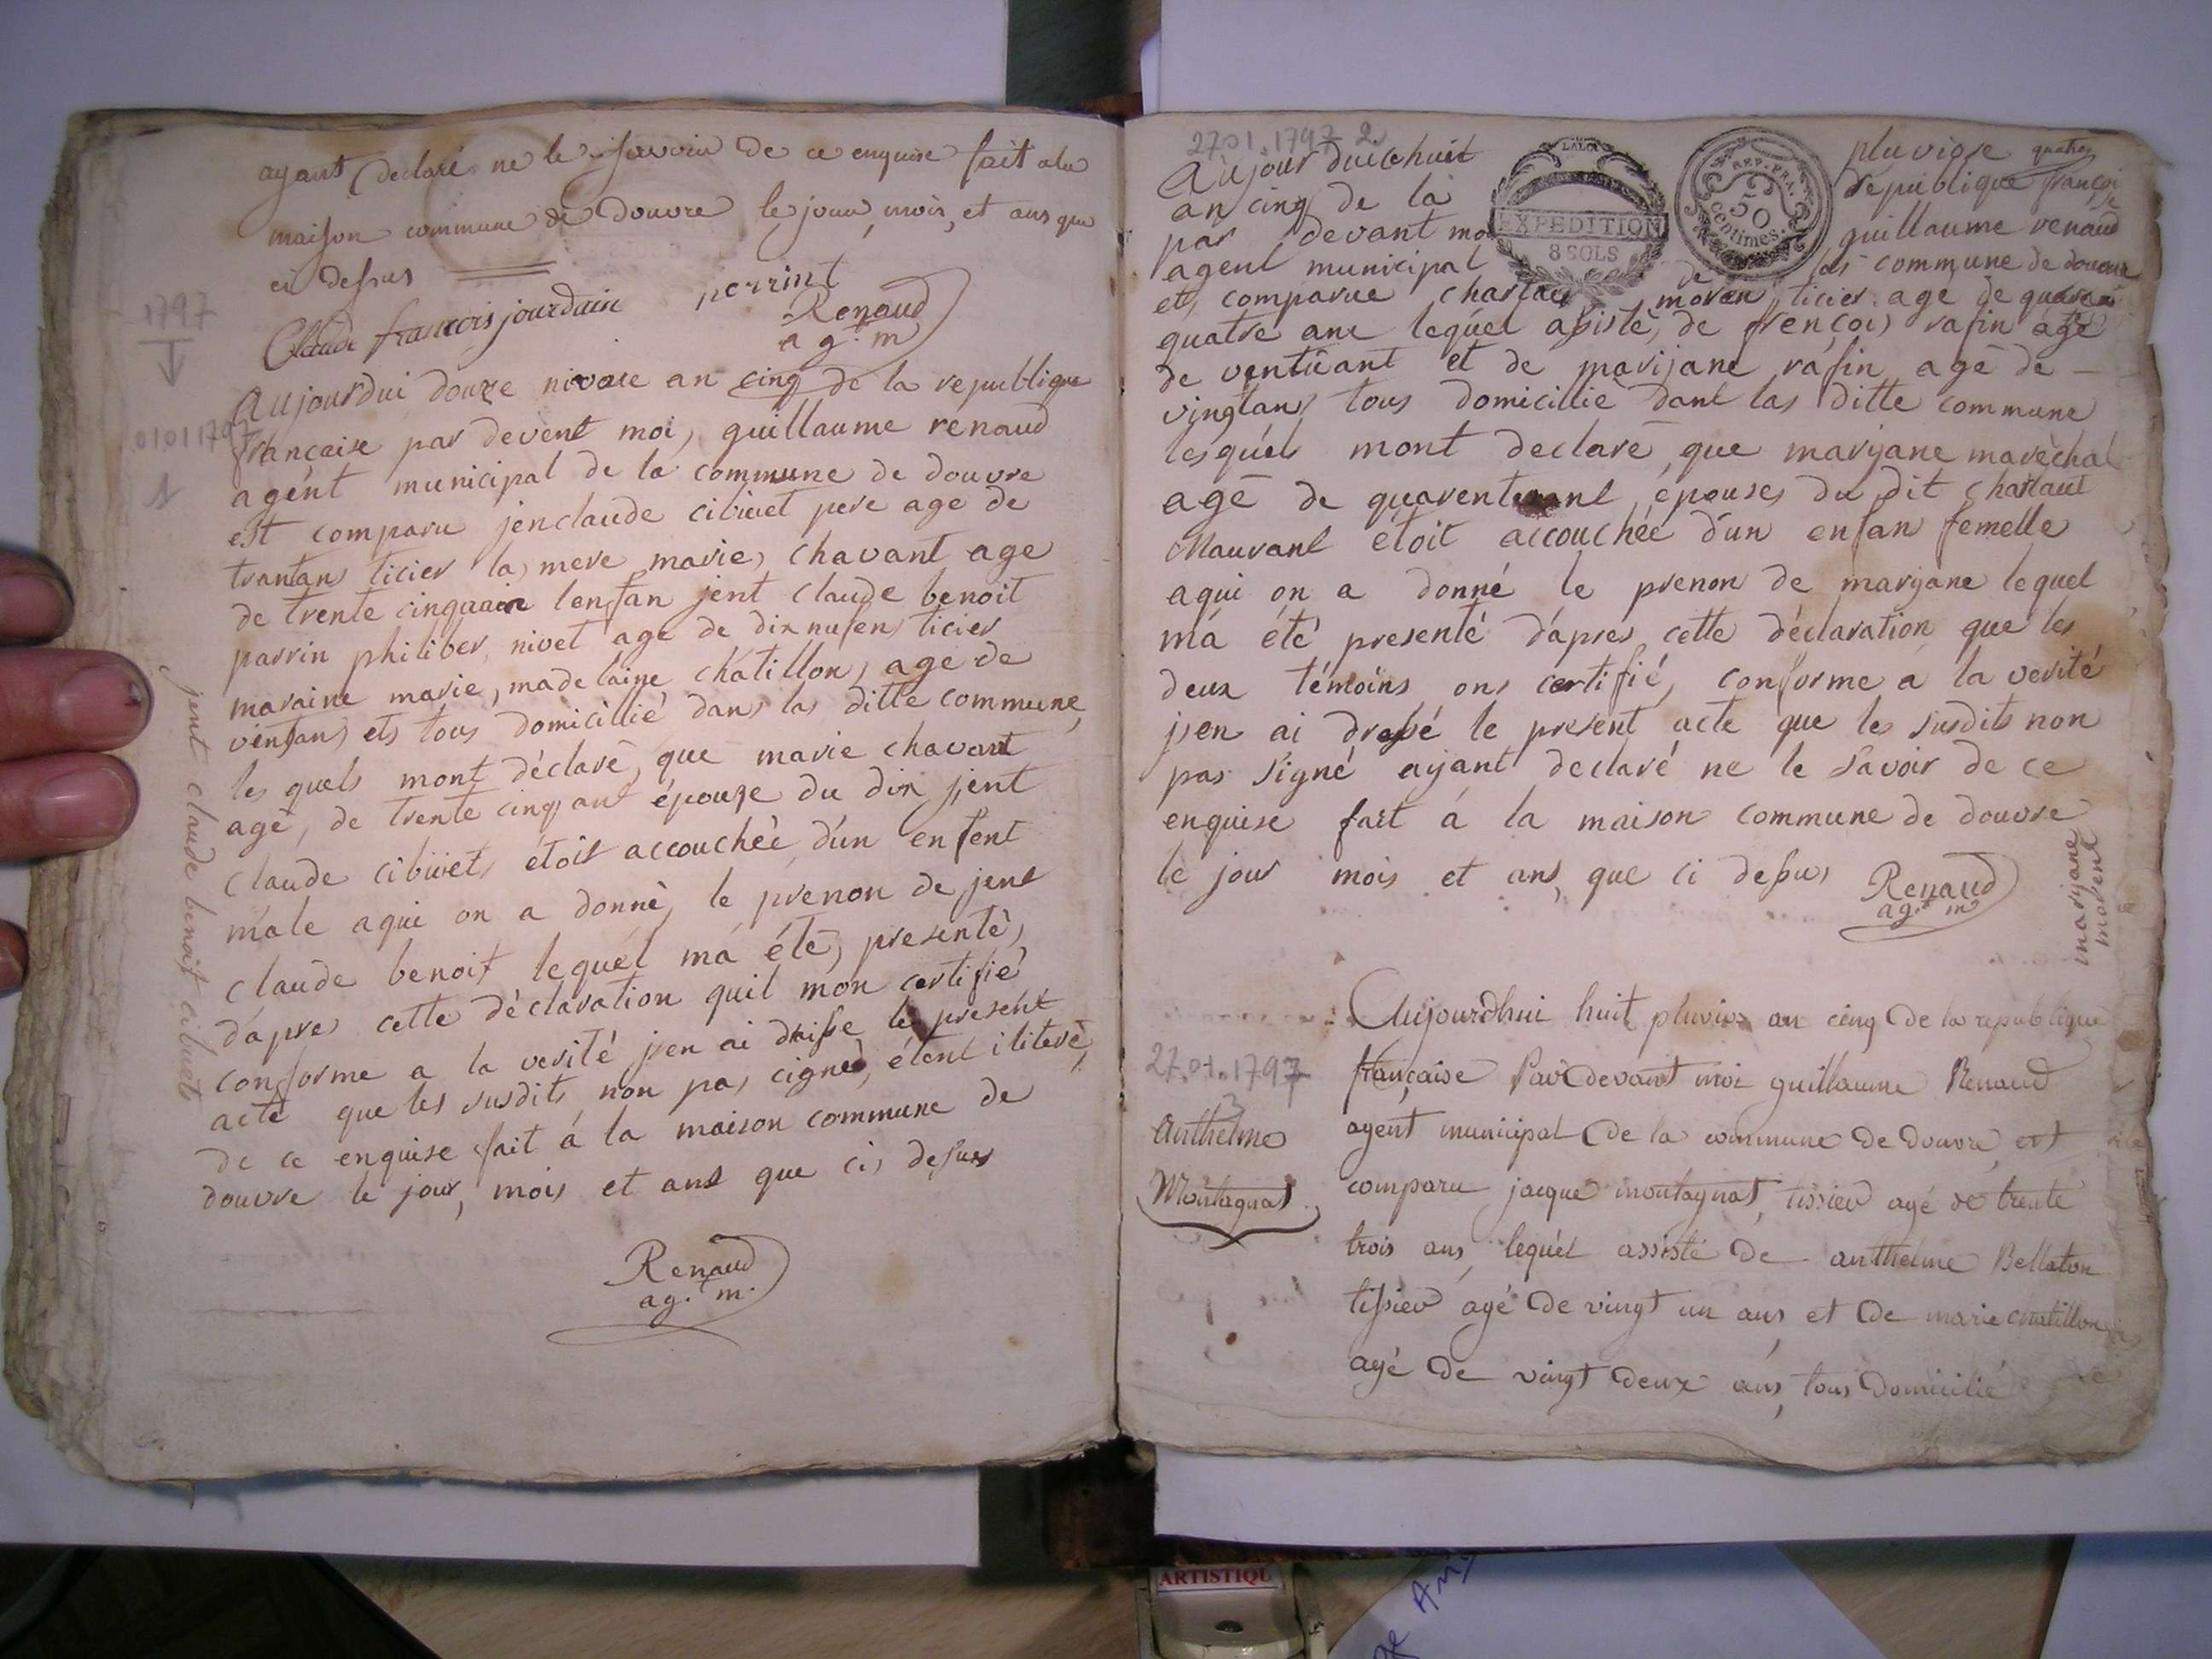 ayant declaré ne le savoir de ce enquise fait a la
maison commune de Douvre le jour, mois, et ans que
ci dessus
Claude francois jourdain perrint
Renaud
ag. m
1797
01011797
1
Aujourdui douze nivose an cinq de la republique
française par devent moi, guillaume renaud
agent municipal de la commune de douvre
est comparu jenclaude cibuet pere age de
trantan ticier la mere marie chavant age
de trente cinq lenfan jent claude benoit
parrin philiber nivet age de dix nufen ticier
maraine marie, madelaine chatillon, age de
ventan ets tous domicillié dans las ditte commune,
les quels mont déclaré, que marie chavant
agé, de trente cinq ant épouze du dix jent
Claude cibuiet étoit accouchéé d'un enfent
male aqui on a donné, le prenon de jent
claude benoit lequel má été, presenté,
dapres cette déclaration quil mon certifié
conforme a la verité jen ai draisse le present
acte que les susdits non pas cigneé, étent ilitere,
de ce enquise fait á la maison commune de
douvre le jour, mois et ans que cis desus
Renaud
ag. m.
jent claude benoit cibuet
27.01.1797 2.
Aujour duichuit pluviose
an cinq de la republique françoise
par devant moi guillaume renaud
agent municipal de las commune de douvre
LA LOI
EXPEDITION
8 SOLS
REP. FRA.
50
centimes.
et, comparue ticier age de quaran
quatre ane lequel asisté, de françois rafin age
de ventuant et de marijane rafin age de
vingtans tous domicillié dant las ditte commune
lesquels mont declaré que marijane maréchal
agé de quarent épouses du dit charlant
Mauvant étoit accouchée d'un enfan femelle
aqui on a donné le prenon de marijane lequel
má été presenté dápres cette déclaration que les
deux témoins ons certifié, conforme a la verité
jen ai dressé le present acte que les susdits non
pas signé ayant declaré ne le savoir de ce
enquise fait á la maison commune de douvre
le jour mois et ans que ci desus
Renaud
ag. m
marijane
morent
Aujourdhui huit pluviose an cinq de la republique
française Pardevant moi guillaume Renaud
agent municipal de la commune de Douvre, est
comparu jacque montagnat, tissier agé de trente
trois ans, lequel assisté de anthelme Bellaton
tissier agé de vingt un ans et de marie chatillon
agé de vingt deux ans, tous domicilié
27.01.1797
3
Anthelme
Montagnat
ARTISTIQU